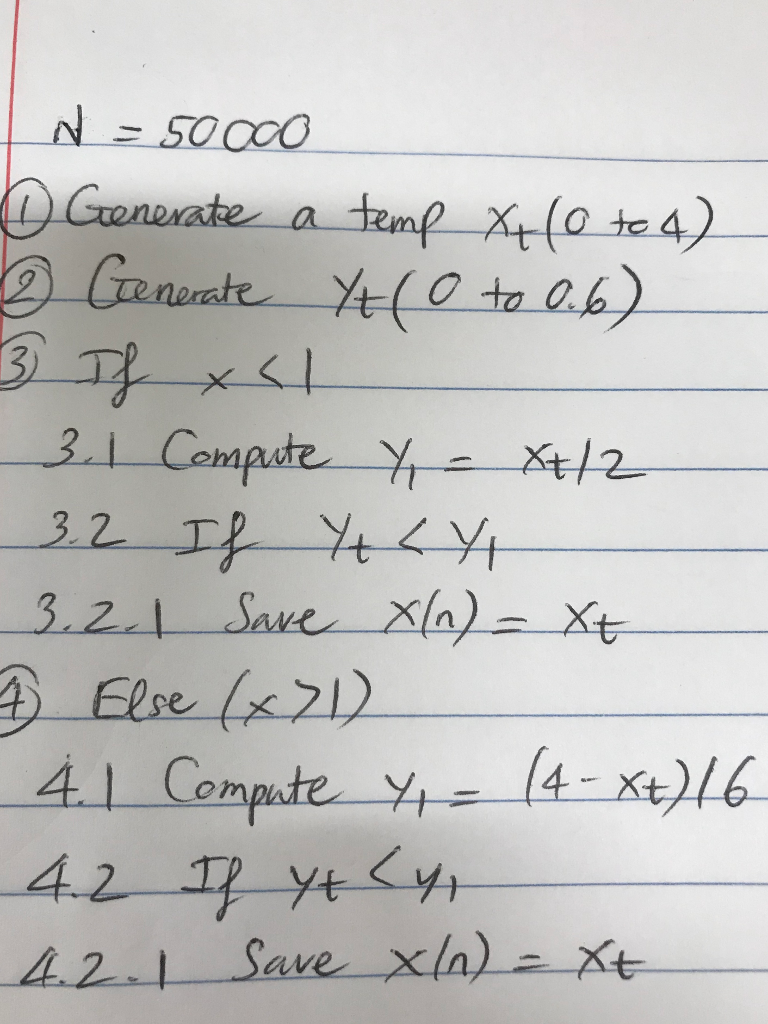 N = 50000
① Generate a temp Xt(0 to 4)
② Generate Yt(0 to 0.6)
③ If x<1
3.1 Compute Y₁ = Xt/2
3.2 If Yt < Y₁
3.2.1 Save X(n) = Xt
④ Else (x>1)
4.1 Compute Y₁ = (4-Xt)/6
4.2 If yt < y₁
4.2.1 Save X(n) = Xt